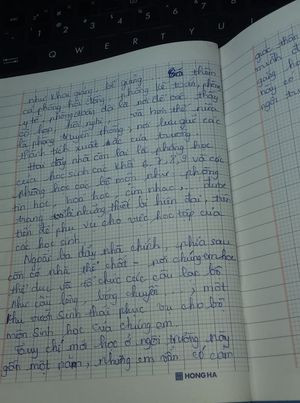 như khai giảng, bế giảng
có phòng hội đồng, phòng kế toán, phòng
tổ họp, hội nghị, và hơn thế nữa
là phòng truyền thống, nơi lưu giữ các
thành tích xuất sắc của trường.
Hai dãy nhà còn lại là phòng học
của học sinh các khối 6, 7, 8, 9 và các
phòng học các bộ môn như: phòng
tin học, hoá học, âm nhạc, được
trang bị những thiết bị hiện đại, tiên
tiến để phục vụ cho việc học tập của
các học sinh.
Ngoài ba dãy nhà chính, phía sau
còn có nhà thể chất - nơi chúng em học
thể dục và tổ chức các câu lạc bộ
như cầu lông, bóng chuyền, một
khu vườn sinh thái phục vụ cho bộ
môn Sinh học của chúng em.
Tuy chỉ mới học ở ngôi trường này
gần một năm, nhưng em vẫn có cảm
HONG HA
giác thân
mình
ngôi trư